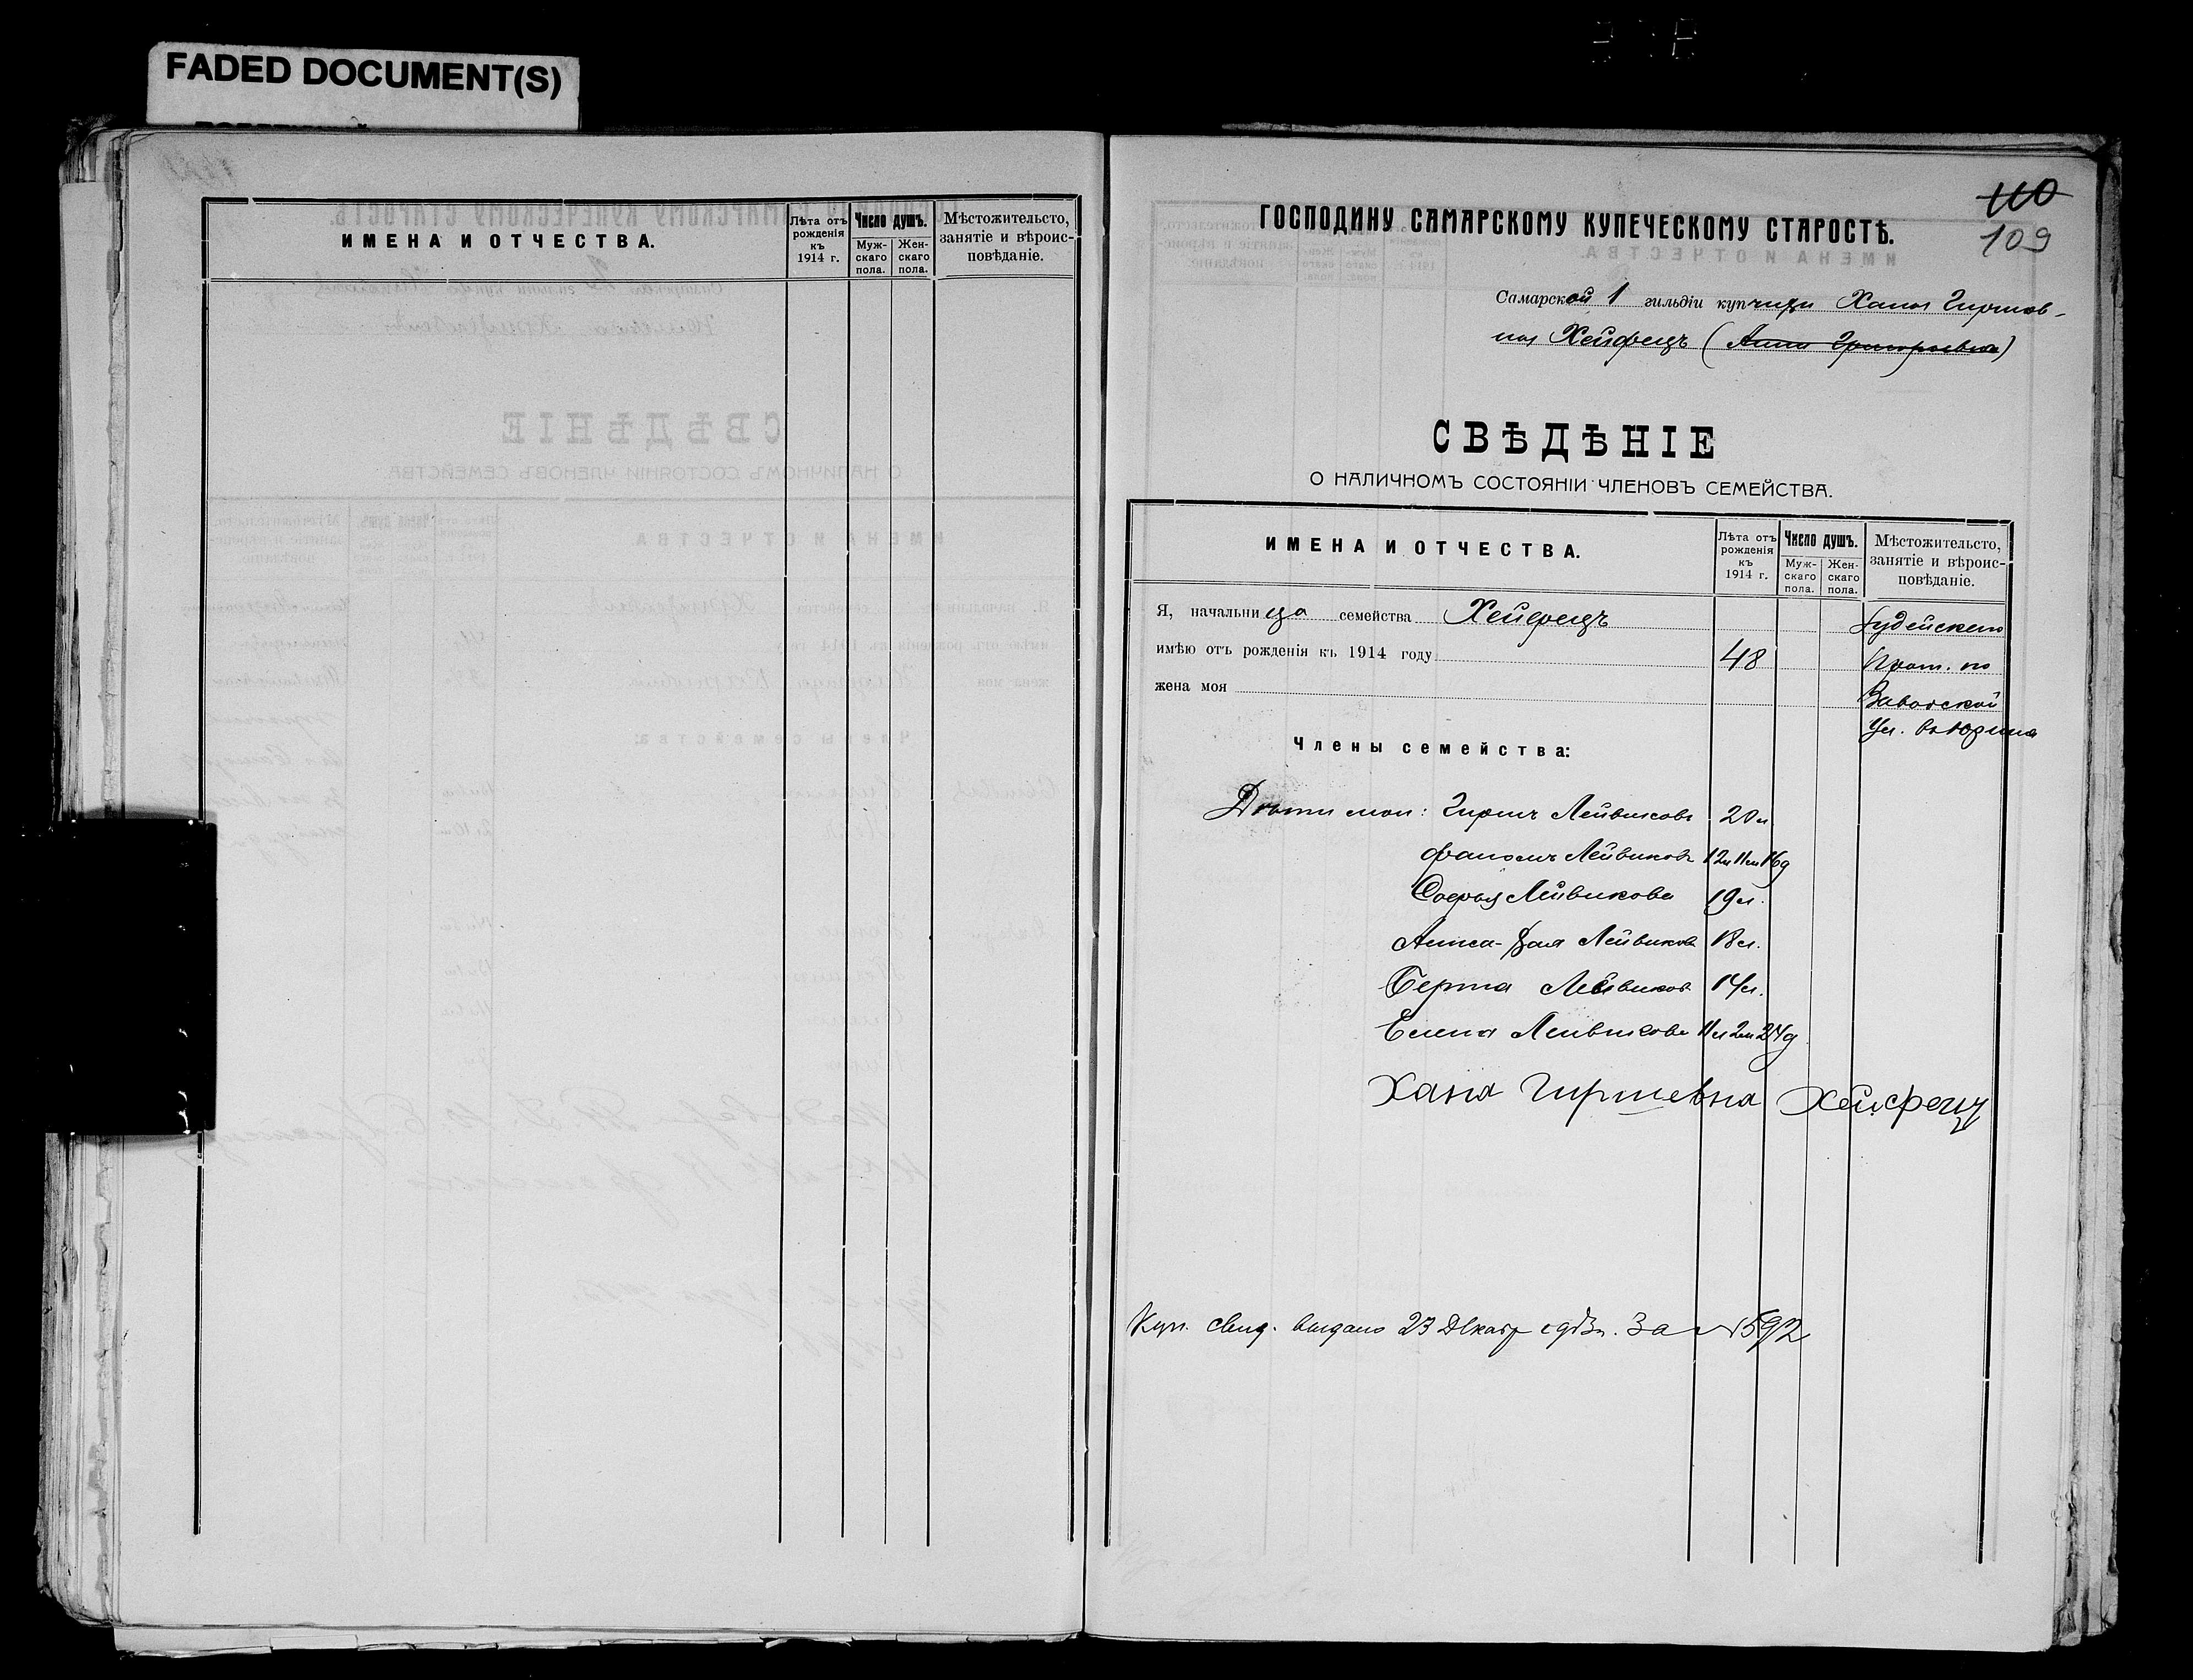 FADED DOCUMENT(S)
ИМЕНА И ОТЧЕСТВА.
Лѣта отъ рожденія къ 1914 г.
Число душъ.
Мужскаго пола.
Женскаго пола.
Мѣстожительсто, занятіе и вѣроисповѣданіе.
110
109
ГОСПОДИНУ САМАРСКОМУ КУПЕЧЕСКОМУ СТАРОСТѢ.
Самарской 1 гильдіи купчихи Ханы Гиршов-
ны Хейфецъ (Анна Григорьевна)
СВѢДѢНІЕ
О НАЛИЧНОМЪ СОСТОЯНІИ ЧЛЕНОВЪ СЕМЕЙСТВА.
ИМЕНА И ОТЧЕСТВА.
Лѣта отъ рожденія къ 1914 г.
Число душъ.
Мужскаго пола.
Женскаго пола.
Мѣстожительсто, занятіе и вѣроисповѣданіе.
Я, начальница семейства Хейфецъ Іудейскаго
имѣю отъ рожденія къ 1914 году 48 Прот. по
жена моя Заводской
Ул. д. Юрина
Члены семейства:
Дѣти мои: Гиршъ Лейвиковъ 20 л
Лейвиковъ 12 л 11 м 16 д
Софья Лейвикова 19 л.
Лейвиков 18 л.
Берта Лейвиков 14 л.
Елена Лейвикова 11 л 2 м 24 д
Хана Гиршевна Хейфецъ
Куп. свид. выдано 23 Декабр 1913 г. За № 592